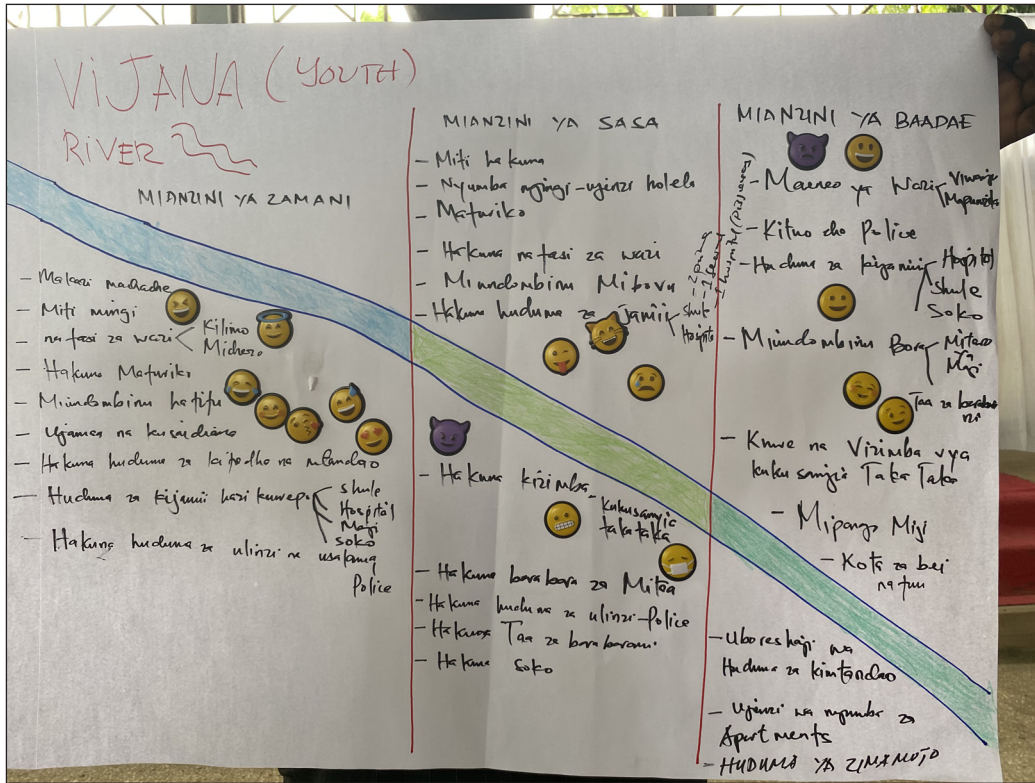 VIJANA (YOUTH)
RIVER
MIANZINI YA ZAMANI
- Makazi machache
- Miti mingi
- nafasi za wazi
Kilimo
Michezo
- Hakuna Mafuriko
- Miundombinu hafifu
- Ujamaa na kusaidiana
- Hakuna huduma za kifedha na mtandao
- Huduma za kijamii hazikuwepo
Shule
Hospital
Maji
Soko
- Hakuna huduma za ulinzi na usalama
Police
MIANZINI YA SASA
- Miti hakuna
- Nyumba nyingi - ujenzi holela
- Mafuriko
- Hakuna nafasi za wazi
- Miundombinu Mibovu
- Hakuna huduma za jamii
Shule
Hospital
- Hakuna kizimba
Kukusanyia
taka taka
- Hakuna barabara za Mitaa
- Hakuna huduma za ulinzi - Police
- Hakuna Taa za barabarani
- Hakuna soko
MIANZINI YA BAADAE
- Maeneo ya Wazi
Viwanja
Mapumziko
- Kituo cha Police
- Huduma za kijamii
Hospital
Shule
Soko
- Miundombinu Bora
Mitaro
Maji
Taa za barabara
ni
- Kuwe na Vizimba vya
kukusanyia Taka Taka
- Mipango Miji
- Kota za bei
nafuu
- Uboreshaji wa
Huduma za kimtandao
- Ujenzi wa nyumba za
Apartments
- HUDUMA YA ZIMAMOTO